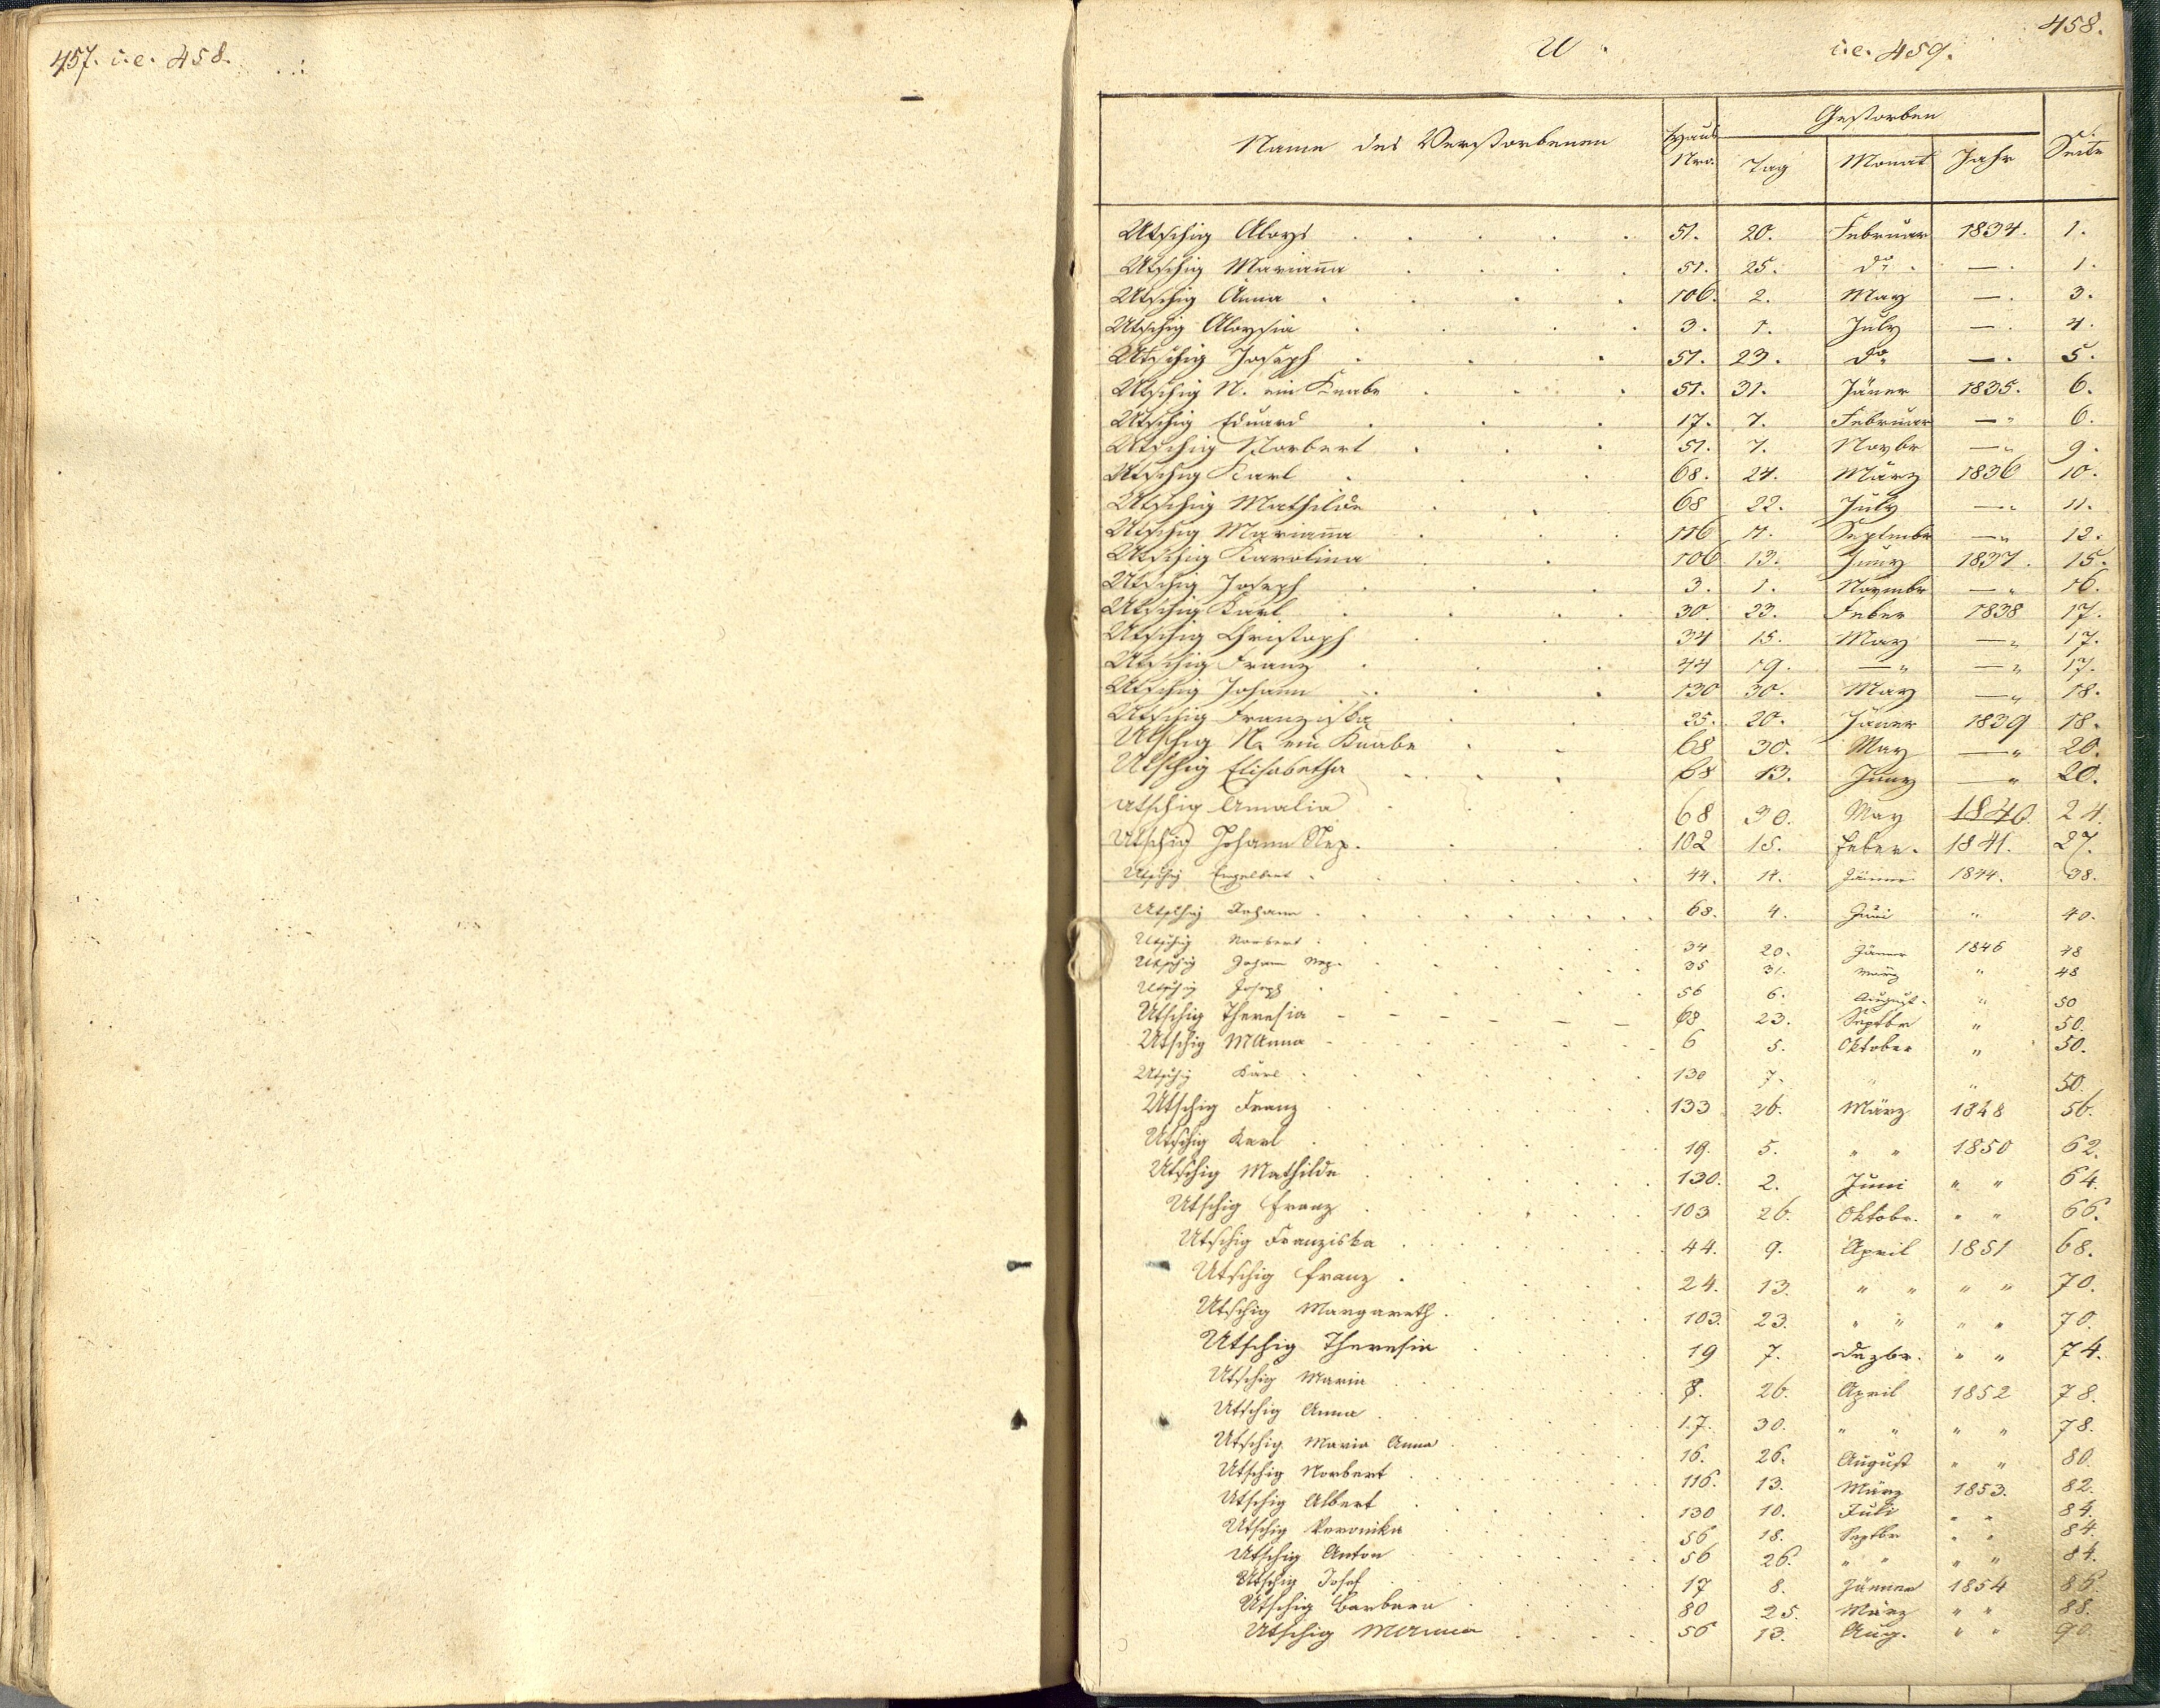 457. i.e. 458.
458.
U.
i.e. 459.
Name des Verstorbenen Haus Nro. Gestorben Seite
Tag Monat Jahr
Utschig Aloys 51. 20. Februar 1834. 1.
Utschig Marianna 51. 25. do. —. 1.
Utschig Anna 106. 2. May —. 3.
Utschig Aloysia 3. 1. July —. 4.
Utschig Joseph 51. 23. do. —. 5.
Utschig N. ein Knabe 51. 31. Jäner 1835. 6.
Utschig Eduard 17. 7. Februar —„ 6.
Utschig Norbert 51. 7. Novbr —„ 9.
Utschig Karl 68. 24. März 1836 10.
Utschig Mathilde 68 22. July —„ 11.
Utschig Marianna 116 11. Septembr —„ 12.
Utschig Karolina 106 13. Juny 1837. 15.
Utschig Joseph 3. 1. Novembr —„ 16.
Utschig Karl 30. 23. Feber 1838 17.
Utschig Christoph 34 15. May —„ 17.
Utschig Franz 44 19. —„ —„ 17.
Utschig Johann 130 30. May —„ 18.
Utschig Franziska 25. 20. Jäner 1839 18.
Utschig N. ein Knabe 68 30. May —„ 20.
Utschig Elisabetha 68 13. Juny —„ 20.
Utschig Amalia 68 30. May 1840. 24.
Utschig Johann Nep. 102 15. Feber. 1841. 27.
Utschig Engelbert 44. 14. Jänner 1844. 38.
Utschig Johann 68. 4. Juni „ 40.
Utschig Norbert 34 20. Jänner 1846 48
Utschig Johann Nep. 35 31. März „ 48
Utschig Joseph 56 6. August „ 50
Utschig Theresia 68 23. Septbr „ 50.
Utschig MAnna 6 5. Oktober „ 50.
Utschig Karl 130 7. „ „ 50.
Utschig Franz 133 26. März 1848 56.
Utschig Karl 19. 5. „ „ 1850 62.
Utschig Mathilde 130. 2. Juni „ „ 64.
Utschig Franz 103 26. Oktobr. „ „ 66.
Utschig Franziska 44. 9. April 1851 68.
Utschig Franz 24. 13. „ „ „ „ 70.
Utschig Margareth 103. 23. „ „ „ „ 70.
Utschig Theresia 19 7. Dezbr. „ „ 74.
Utschig Maria 8. 26. April 1852 78.
Utschig Anna 17. 30. „ „ „ „ 78.
Utschig Maria Anna 16. 26. August „ „ 80.
Utschig Norbert 116. 13. März 1853. 82.
Utschig Albert 130 10. Juli „ „ 84.
Utschig Veronika 56 18. Septbr „ „ 84.
Utschig Anton 56 26. „ „ „ „ 84.
Utschig Josef 17 8. Jänner 1854 86.
Utschig Barbara 80 25. März „ „ 88.
Utschig MAnna 56 13. Aug. „ „ 90.